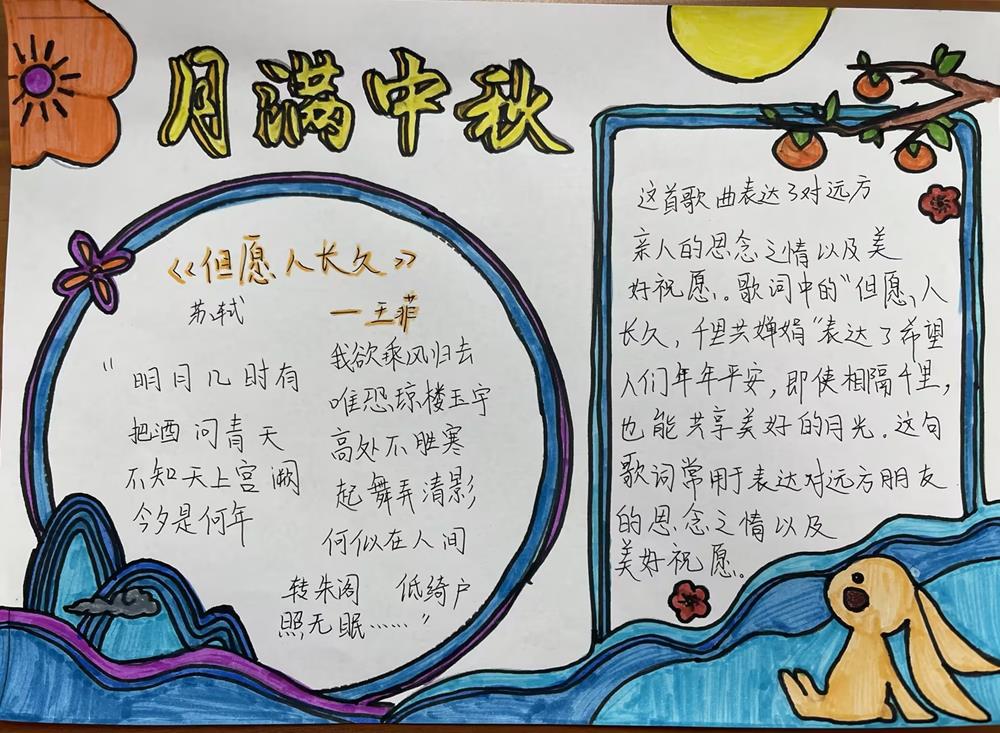 月满中秋
《但愿人长久》
苏轼
一王菲
"明月几时有
把酒问青天
不知天上宫阙
今夕是何年
我欲乘风归去
唯恐琼楼玉宇
高处不胜寒
起舞弄清影
何似在人间
转朱阁 低绮户
照无眠……"
这首歌曲表达了对远方
亲人的思念之情以及美
好祝愿。歌词中的"但愿人
长久,千里共婵娟"表达了希望
人们年年平安,即使相隔千里,
也能共享美好的月光。这句
歌词常用于表达对远方朋友
的思念之情以及
美好祝愿。